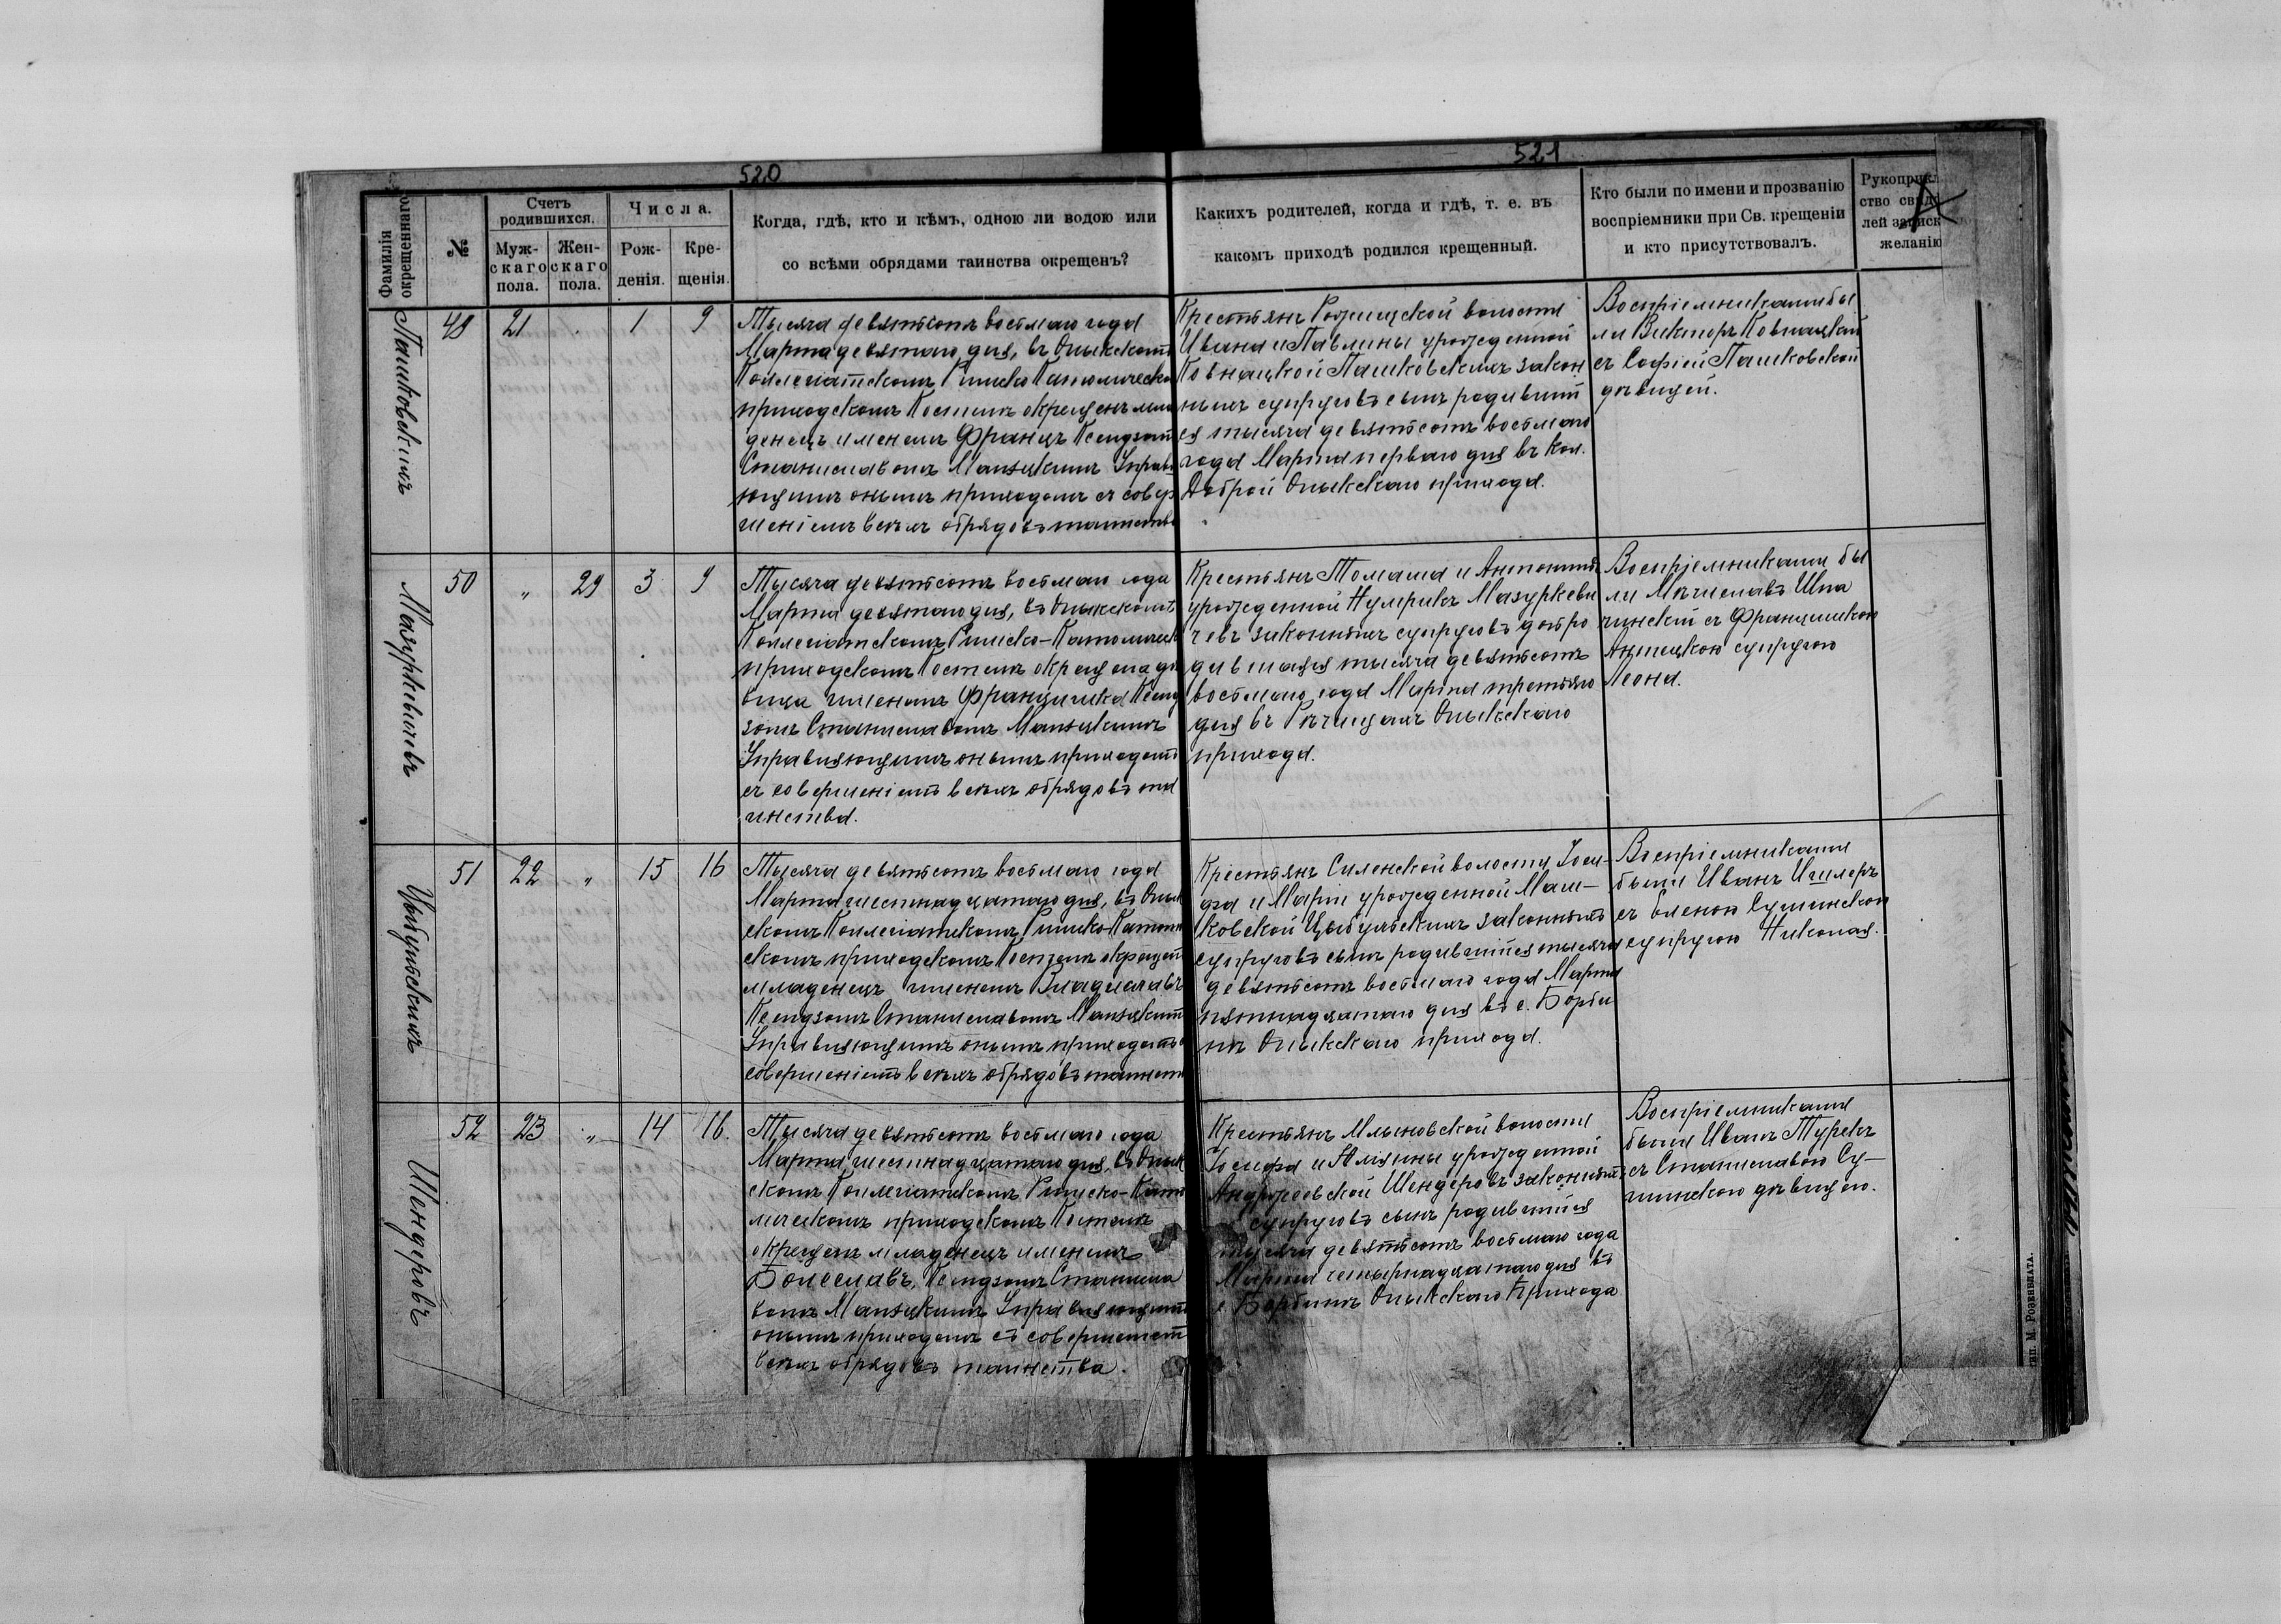 520
521
Фамилія окрещеннаго
№
Счетъ родившихся.
Муж-
скаго
пола.
Жен-
скаго
пола.
Числа.
Рож-
денія.
Кре-
щенія.
Когда, гдѣ, кто и кѣмъ, одною ли водою или
со всѣми обрядами таинства окрещенъ?
Какихъ родителей, когда и гдѣ, т. е. въ
какомъ приходѣ родился крещенный.
Кто были по имени и прозванію
воспріемники при Св. крещеніи
и кто присутствовалъ.
Рукоприкл
ство свид
лей записк
желанію
Пашковскихъ
48 21 . 1 9
Тысяча девятьсотъ восьмаго года
Марта девятаго дня, въ Олыкскомъ
Коллегіатскомъ Римско Католическо
приходскомъ Костелѣ окрещенъ мла
денецъ именемъ Францъ Ксендзомъ
Станиславомъ Манжикимъ Управл
ющимъ онымъ приходомъ съ совер
шеніемъ всѣхъ обрядовъ таинства
Крестьянъ Рожищской волости
Ивана и Павлины урожденной
Ковнацкой Пашковскихъ закон
ныхъ супруговъ сынъ родившій
ся тысяча девятьсотъ восьмаго
года Марта перваго дня въ кол.
Доброй Олыкскаго прихода.
Воспріемниками бы
ли Викторъ Ковнацкій
съ Софіей Пашковской
дѣвицей.
Мазуркевичевъ
50 „ 29 3 9
Тысяча девятьсотъ восьмаго года
Марта девятаго дня, въ Олыкскомъ
Коллегіатскомъ Римско-Католическ
приходскомъ Костелѣ окрещена дѣ
вица именемъ Францишка Ксенд
зомъ Станиславомъ Манжикимъ
Управляющимъ онымъ приходомъ
съ совершеніемъ всѣхъ обрядовъ та
инства.
Крестьянъ Томаша и Антонины
урожденной Нумрикъ Мазуркеви
чевъ законныхъ супруговъ дочь ро
дившаяся тысяча девятьсотъ
восьмаго года Марта третьяго
дня въ Рѣчищахъ Олыкскаго
прихода.
Воспріемниками бы
ли Мѣчиславъ Шпа
чинскій съ Францишкою
супругою
Леона.
Цыбульскихъ
51 22 „ 15 16
Тысяча девятьсотъ восьмаго года
Марта шестнадцатаго дня, въ Олык
скомъ Коллегіатскомъ Римско-Католи
скомъ приходскомъ Костелѣ окрещенъ
младенецъ именемъ Владиславъ
Ксендзомъ Станиславомъ Манжикимъ
Управляющимъ онымъ приходомъ с
совершеніемъ всѣхъ обрядовъ таинств
Крестьянъ Силенской волости Іоси-
фа и Маріи урожденной Маш-
ковской Цыбульскихъ законныхъ
супруговъ сынъ родившійся тысяча
девятьсотъ восьмаго года Марта
пятнадцатаго дня въ с. Борби
нѣ Олыкскаго прихода.
Воспріемниками
были Иванъ Ишлеръ
съ Еленою Сушинскою
супругою Николая.
Шендеровъ
52 23 „ 14 16.
Тысяча девятьсотъ восьмаго года
Марта, шестнадцатаго дня, въ Олык
скомъ Коллегіатскомъ Римско-Като
лическомъ приходскомъ Костелѣ
окрещенъ младенецъ именемъ
Болеславъ, Ксендзомъ Станисла
вомъ Манжикимъ Управляющимъ
онымъ приходомъ съ совершеніемъ
всѣхъ обрядовъ таинства.
Крестьянъ Млыновской волости
Іосифа и урожденной
Анджеевской Шендеровъ законныхъ
супруговъ сынъ родившійся
тысяча девятьсотъ восьмаго года
Марта четырнадцатаго дня въ
с. Борбинѣ Олыкскаго прихода
Воспріемниками
были Иванъ Турекъ
съ Станиславою Су-
шинскою дѣвицею.
тип. М. Розенблата.